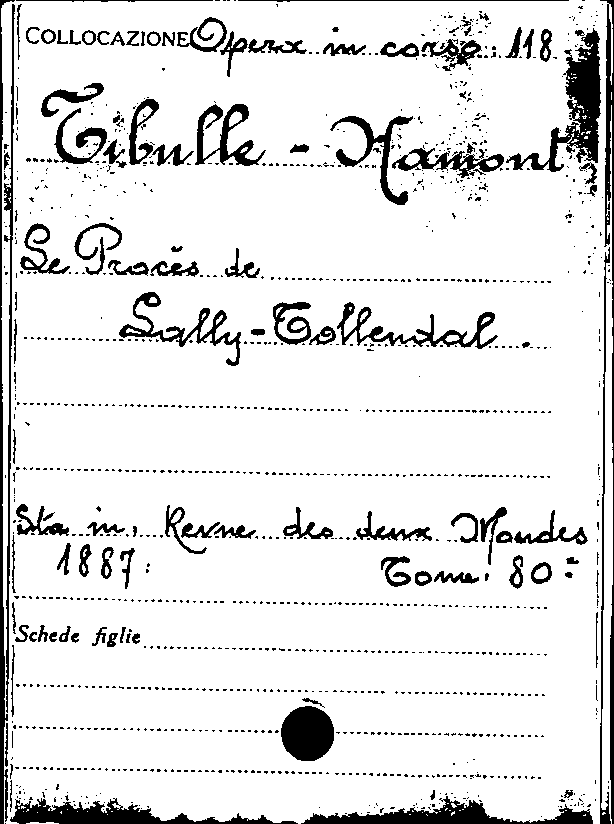 COLLOCAZIONE Opera in corso: 118
Tibulle - Hamont
Le Procès de
Lally-Tollendal.
Sta in, Revue des deux Mondes
1887: Tome: 80º
Schede figlie